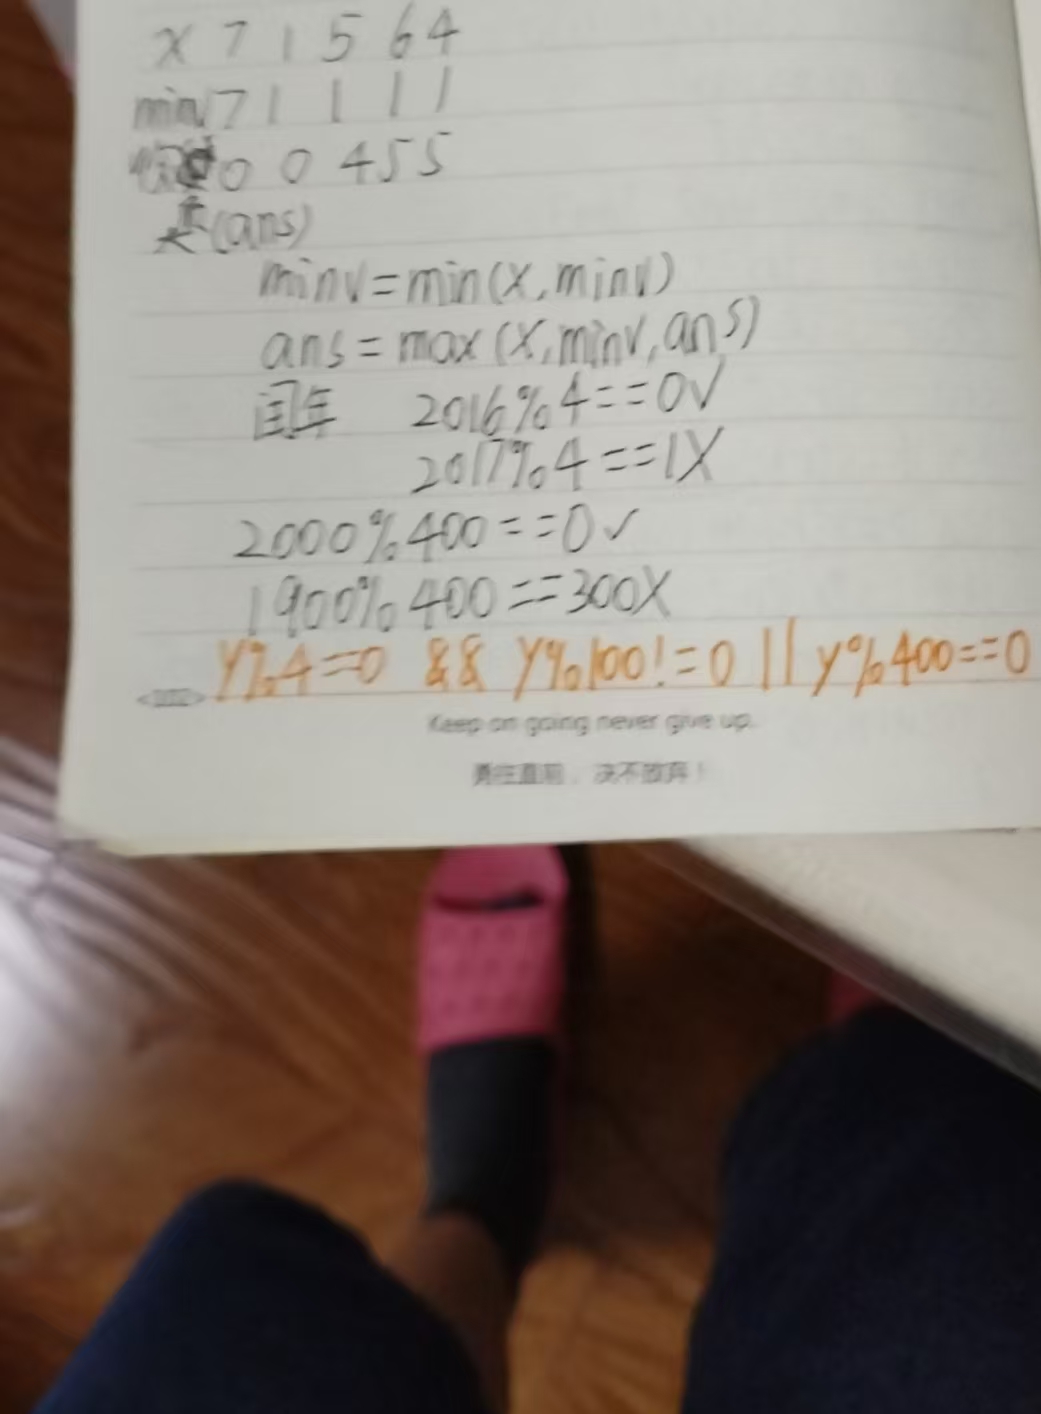 x 7 1 5 6 4
minv 7 1 1 1 1
0 0 4 5 5
(ans)
minv=min(x,minv)
ans=max(x,minv,ans)
闰年 2016%4==0√
2017%4==1X
2000%400==0√
1900%400==300X
y%4==0 && y%100!=0 || y%400==0
Keep on going never give up.
勇往直前，决不放弃！